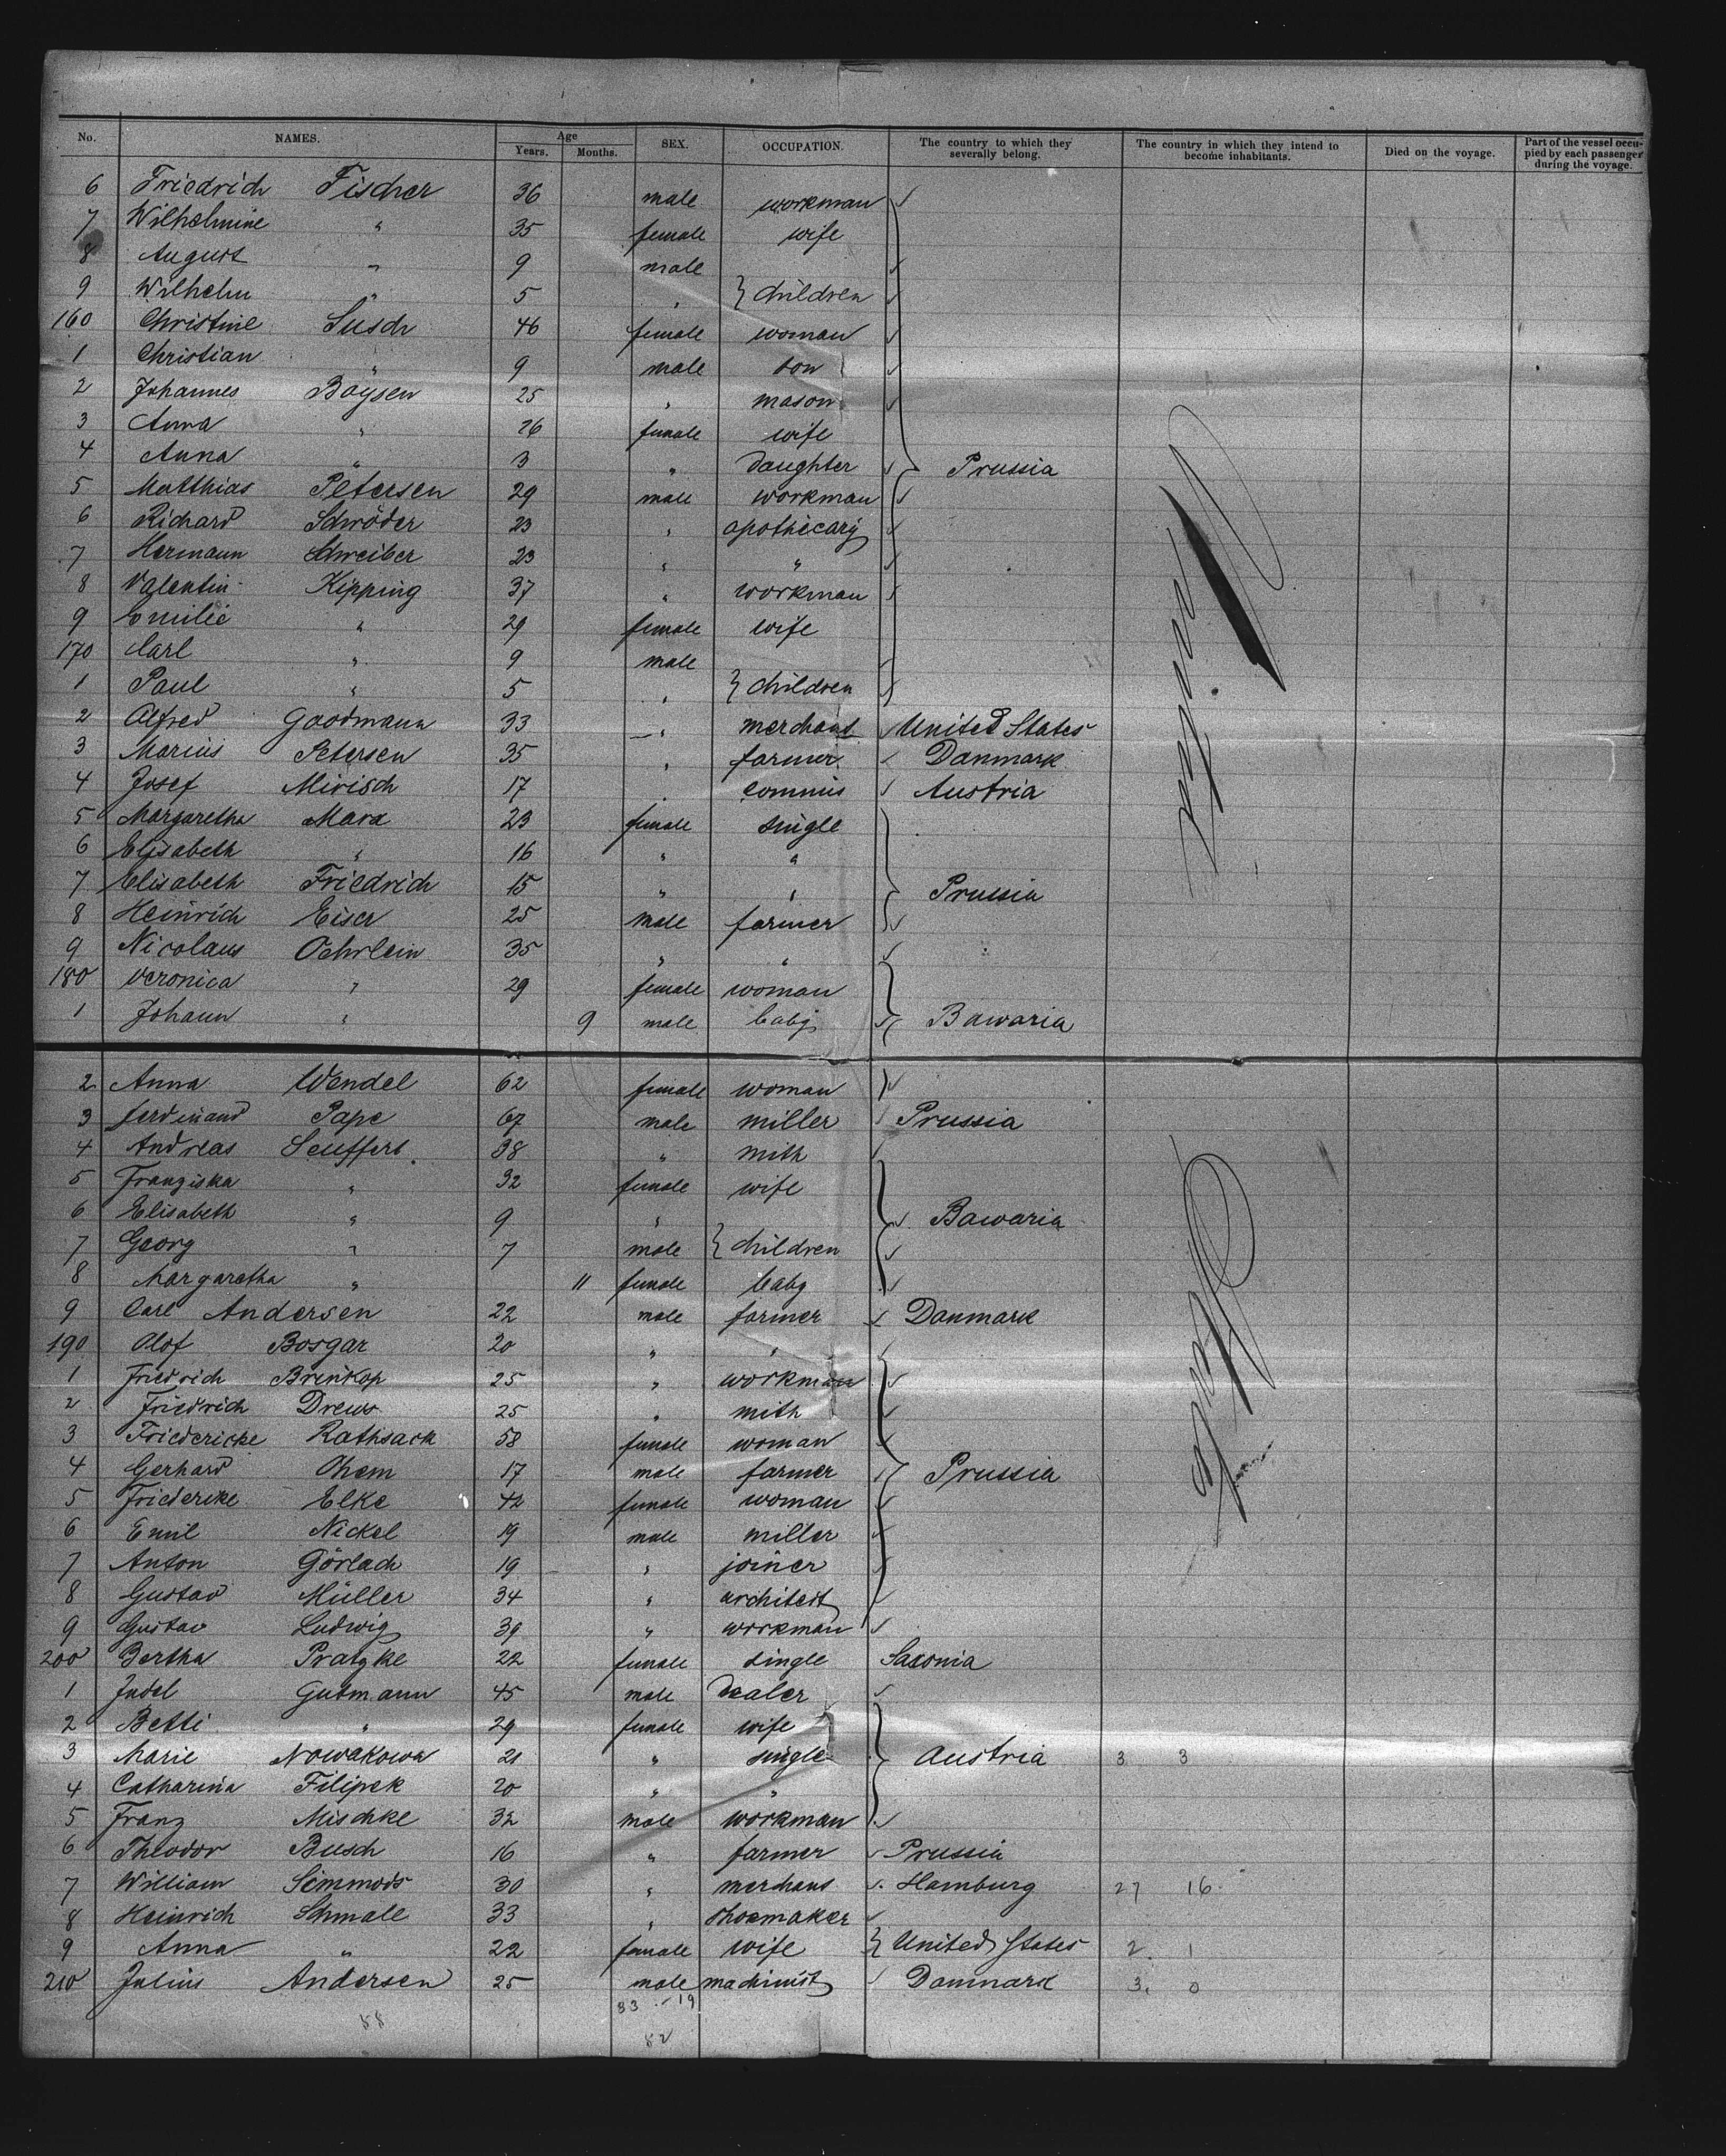 No. NAMES. Age Years. Months. SEX. OCCUPATION. The country to which they severally belong. The country in which they intend to become inhabitants. Died on the voyage. Part of the vessel occupied by each passenger during the voyage.
6 Friedrich Fischer 36 male workman
7 Wilhelmine " 35 female wife
8 August " 9 male
9 Wilhelm " 5 " } children
160 Christine Susch 46 female woman
1 Christian " 9 male son
2 Johannes Boysen 25 " mason
3 Anna " 26 female wife
4 Anna " 3 " daughter Prussia
5 Matthias Petersen 29 male workman
6 Richard Schröder 23 " apothecary
7 Hermann Schreiber 23 " "
8 Valentin Kipping 37 " workman
9 Emilie " 29 female wife
170 Carl " 9 male
1 Paul " 5 " } children
2 Alfred Goodmann 33 " merchant United States
3 Marius Petersen 35 " farmer Danmark
4 Josef Mirisch 17 commis Austria
5 Margaretha Marx 23 female single
6 Elisabeth " 16 " "
7 Elisabeth Friedrich 15 " " Prussia
8 Heinrich Eiser 25 male farmer
9 Nicolaus Oehrlein 35 " "
180 Veronica " 29 female woman
1 Johann " 9 male baby Bawaria
2 Anna Wendel 62 female woman
3 Ferdinand Pape 67 male miller Prussia
4 Andreas Seuffert 38 " mith
5 Franziska " 32 female wife
6 Elisabeth " 9 " Bawaria
7 Georg " 7 male } children
8 Margaretha " 11 female baby
9 Carl Andersen 22 male farmer Danmark
190 Olof Bosgar 20 " "
1 Friedrich Brinkop 25 " workman
2 Friedrich Drews 25 " mith
3 Friedericke Rathsack 58 female woman
4 Gerhard Ohem 17 male farmer Prussia
5 Friedericke Elke 42 female woman
6 Emil Nickel 19 male miller
7 Anton Görlach 19 " joiner
8 Gustav Müller 34 " architect
9 Gustav Ludwig 39 " workman
200 Bertha Pratzke 22 female single Saxonia
1 Judel Gutmann 45 male Dealer
2 Betti " 29 female wife
3 Marie Nowakowa 21 " single Austria 3 3
4 Catharina Filipek 20 " "
5 Franz Mischke 32 male workman
6 Theodor Busch 16 " farmer Prussia
7 William Simmods 30 " merchant Hamburg 27 16
8 Heinrich Schmall 33 " shoemaker
9 Anna " 22 female wife } United States 2 1
210 Julius Andersen 25 male machinist Danmark 3. 0
83 - 19
58 82